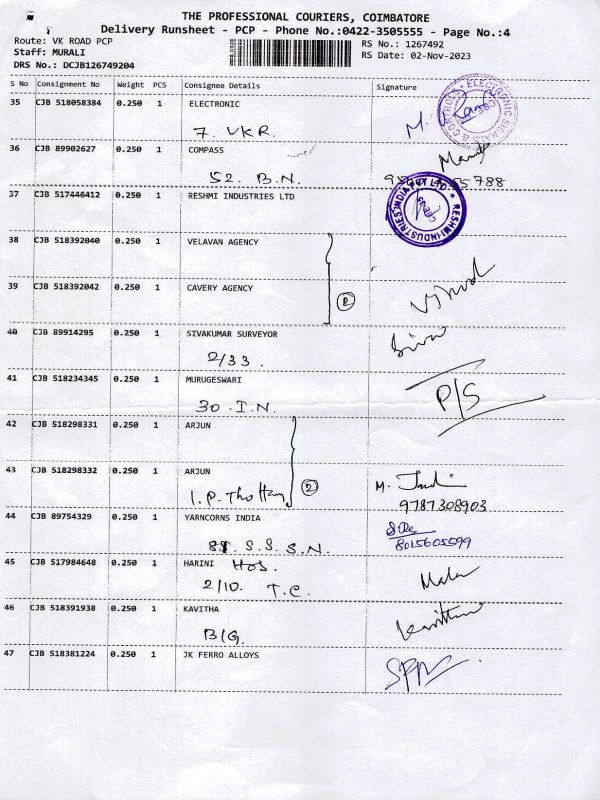 THE PROFESSIONAL COURIERS, COIMBATORE
Delivery Runsheet - PCP - Phone No.:0422-3505555 - Page No.:4
Route: VK ROAD PCP
RS No.: 1267492
Staff: MURALI
RS Date: 02-Nov-2023
DRS No.: DCJB126749204
S No Consignment No Weight PCS Consignee Details Signature
35 CJB 518058384 0.250 1 ELECTRONIC
7. VKR.
36 CJB 89902627 0.250 1 COMPASS
52. B.N.
37 CJB 517446412 0.250 1 RESHMI INDUSTRIES LTD
RESHMI INDUSTRIES INDIA PVT LTD
38 CJB 518392040 0.250 1 VELAVAN AGENCY
39 CJB 518392042 0.250 1 CAVERY AGENCY
2
Vinod
40 CJB 89914295 0.250 1 SIVAKUMAR SURVEYOR
2/33. Siva
41 CJB 518234345 0.250 1 MURUGESWARI
30. I.N. P/S
42 CJB 518298331 0.250 1 ARJUN
43 CJB 518298332 0.250 1 ARJUN
I.P. Thottam 2 M.
9787308903
44 CJB 89754329 0.250 1 YARNCORNS INDIA
S.S.S.N. 8015605599
45 CJB 517984648 0.250 1 HARINI HOS.
2/10. T.C.
46 CJB 518391938 0.250 1 KAVITHA
B/G. Kavitha
47 CJB 518381224 0.250 1 JK FERRO ALLOYS